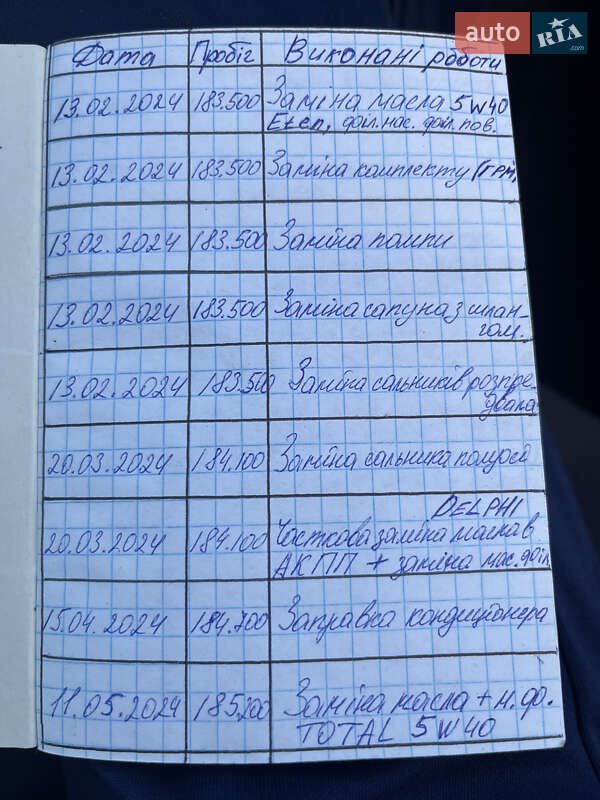 auto RIA .com
Дата Пробіг Виконані роботи
13.02.2024 183.500 Заміна масла 5W40
Elcn, філ.мас. філ.пов.
13.02.2024 183.500 Заміна комплекту (ГРМ)
13.02.2024 183.500 Заміна помпи
13.02.2024 183.500 Заміна сапуна з шлан-
гом.
13.02.2024 183.500 Заміна сальників розпре-
двала
20.03.2024 184.100 Заміна сальника полуосі
DELPHI
20.03.2024 184.100 Часткова заміна масла в
АКПП + заміна мас. філ.
15.04.2024 184.700 Заправка кондиціонера
11.05.2024 185.200 Заміна масла + м.ф.
TOTAL 5W40